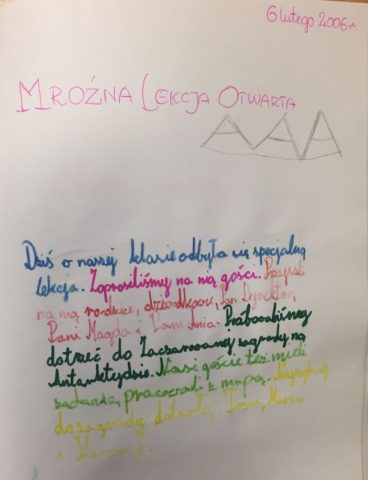 6 lutego 2006 r.
MROŹNA LEKCJA OTWARTA
AAA
Dziś o naszej klasie odbyła się specjalna
lekcja. Zaprosiliśmy na nią gości. Przyszli
na nią rodzice, dziadkowie, Pan Dyrektor,
Pani Magda i Pani Ania. Próbowaliśmy
dotrzeć do Zaczarowanej zagrody na
Antarktydzie. Nasi goście też mieli
zadania, pracowali z mapą. Najszybciej
do zagrody dotarła: Tosia,
i Karol J.